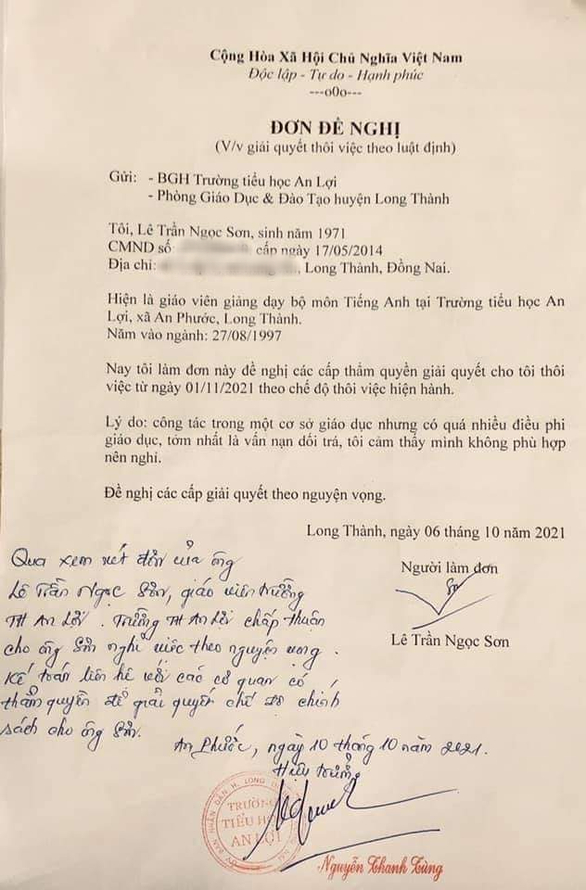 Cộng Hòa Xã Hội Chủ Nghĩa Việt Nam
Độc lập - Tự do - Hạnh phúc
---o0o---
ĐƠN ĐỀ NGHỊ
(V/v giải quyết thôi việc theo luật định)
Gửi: - BGH Trường tiểu học An Lợi
- Phòng Giáo Dục & Đào Tạo huyện Long Thành
Tôi, Lê Trần Ngọc Sơn, sinh năm 1971
CMND số cấp ngày 17/05/2014
Địa chỉ: , Long Thành, Đồng Nai.
Hiện là giáo viên giảng dạy bộ môn Tiếng Anh tại Trường tiểu học An
Lợi, xã An Phước, Long Thành.
Năm vào ngành: 27/08/1997
Nay tôi làm đơn này đề nghị các cấp thẩm quyền giải quyết cho tôi thôi
việc từ ngày 01/11/2021 theo chế độ thôi việc hiện hành.
Lý do: công tác trong một cơ sở giáo dục nhưng có quá nhiều điều phi
giáo dục, tởm nhất là vấn nạn dối trá, tôi cảm thấy mình không phù hợp
nên nghỉ.
Đề nghị các cấp giải quyết theo nguyện vọng.
Long Thành, ngày 06 tháng 10 năm 2021
Người làm đơn
Lê Trần Ngọc Sơn
Qua xem xét đơn của ông
Lê Trần Ngọc Sơn, giáo viên trường
TH An Lợi. Trường TH An Lợi chấp thuận
cho ông Sơn nghỉ việc theo nguyện vọng.
Kế toán liên hệ với các cơ quan có
thẩm quyền để giải quyết chế độ chính
sách cho ông Sơn.
An Phước, ngày 10 tháng 10 năm 2021.
Hiệu trưởng
TRƯỜNG
TIỂU HỌC
AN LỢI
Nguyễn Thanh Tùng